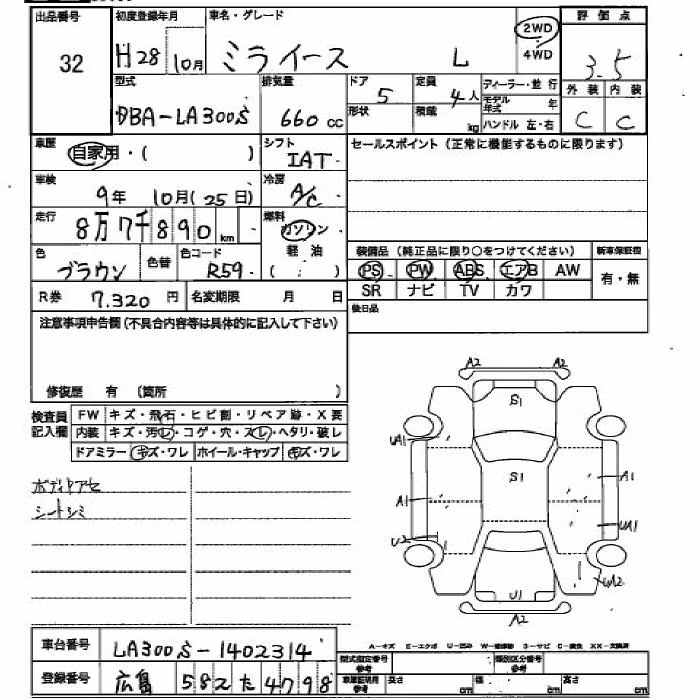 出品番号 初度登録年月 車名・グレード 2WD 4WD 評価点
32 H28 10月 ミライース L 3.5
型式 排気量 ドア 定員 ディーラー・並行 外装 内装
DBA-LA300S 660cc 5 4人 モデル年式 年 C C
形状 積載 kg ハンドル 左・右
車歴 自家用・( ) シフト IAT セールスポイント(正常に機能するものに限ります)
車検 9年 10月(25日) 冷房 A/C
走行 8万7千890km 燃料 ガソリン 軽油 ( : )
色 ブラウン 色替 色コード R59 装備品(純正品に限り○をつけてください) 新車保証書
PS PW ABS エアB AW 有・無
R券 7.320円 名変期限 月 日 SR ナビ TV カワ
注意事項申告欄(不具合内容等は具体的に記入して下さい) 後日品
修復歴 有 (箇所 )
検査員記入欄 FW キズ・飛石・ヒビ割・リペア跡・X要
内装 キズ・汚レ・コゲ・穴・スレ・ヘタリ・破レ
ドアミラー キズ・ワレ ホイール・キャップ キズ・ワレ
ボディヤケセ
シートシミ
A2 A2
S1
UA1
S1
A1 A1
UA1
U2
UA2
U1
A2
A-キズ E-エクボ U-凹み W-補修跡 S-サビ C-腐食 XX-交換済
車台番号 LA300S-1402314
登録番号 広島 582 た 4798
型式指定番号 参考 類別区分番号 参考
車庫証明用 参考 長さ cm 幅 cm 高さ cm